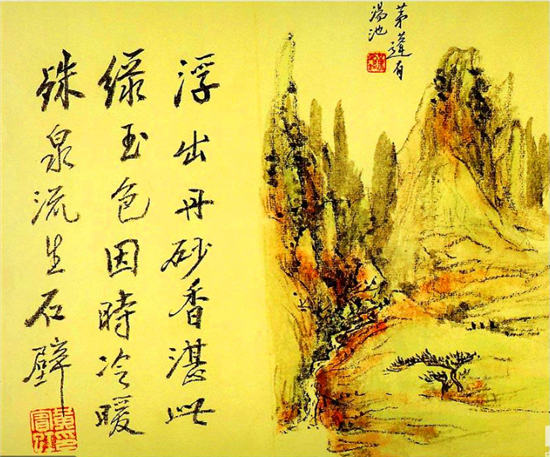 茅蓬有
湯池
浮出丹砂香湛此
緑玉色因時冷暖
殊泉流生石壁